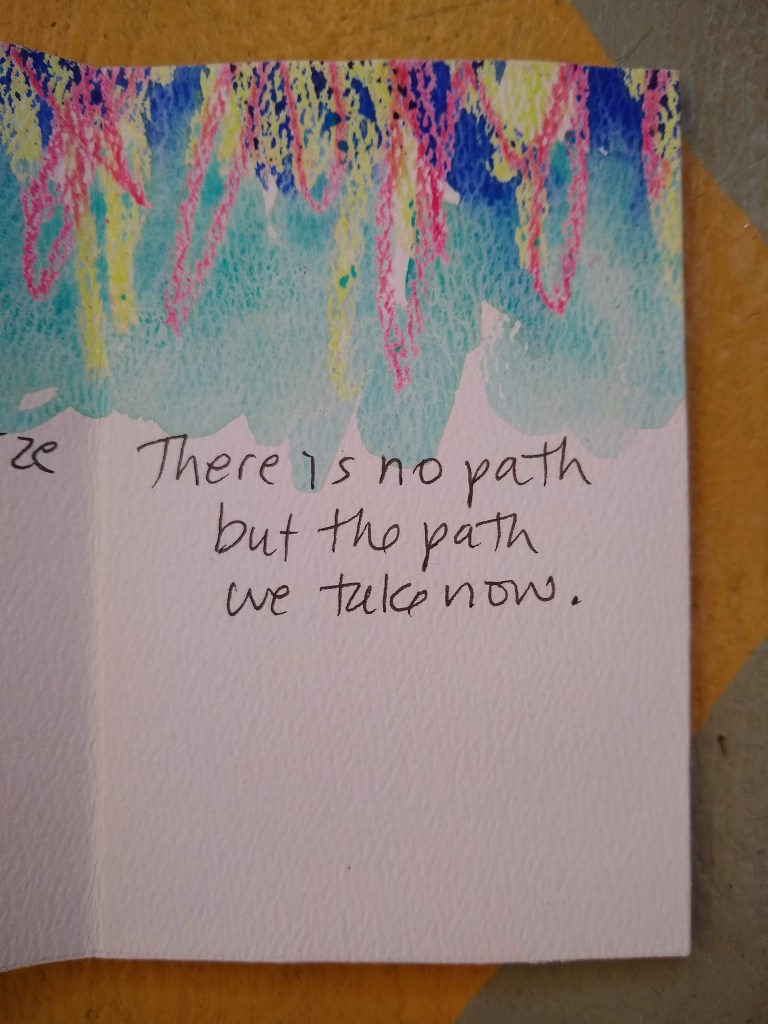 There is no path
but the path
we take now.